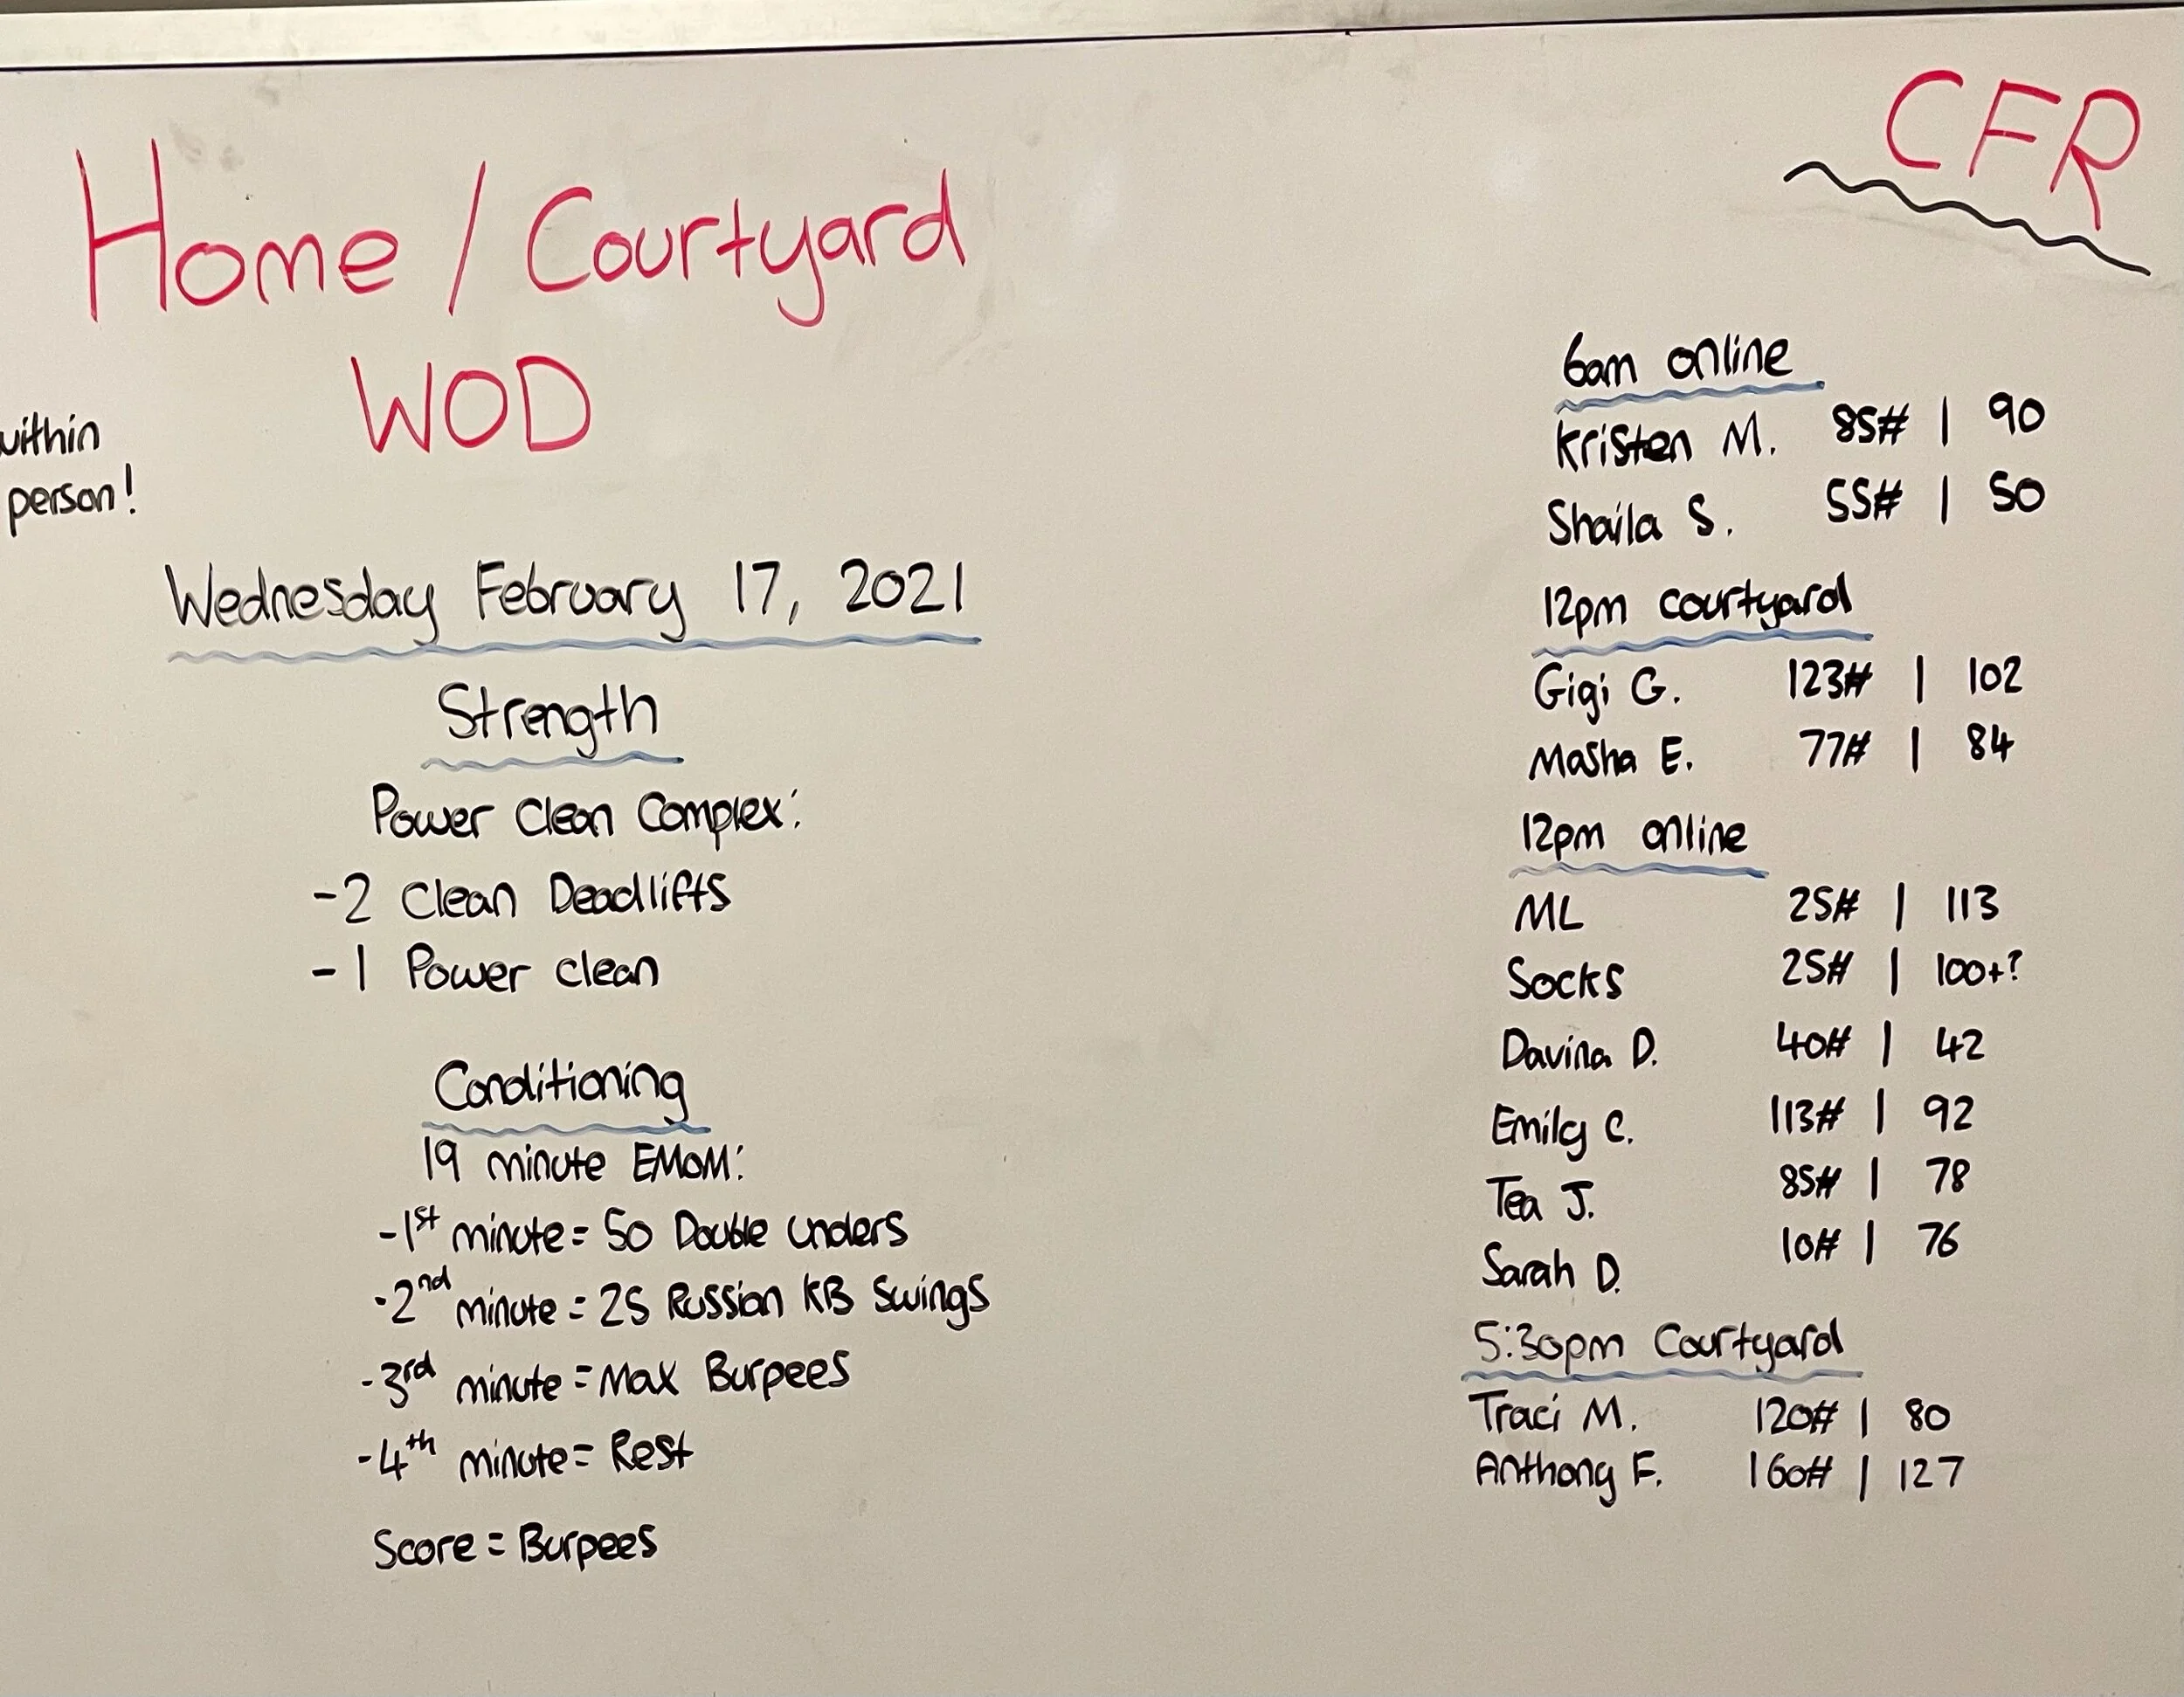 CFR
Home / Courtyard
WOD
within
person!
Wednesday February 17, 2021
Strength
Power Clean Complex:
-2 Clean Deadlifts
-1 Power Clean
Conditioning
19 minute EMOM:
-1st minute = 50 Double unders
-2nd minute = 25 Russian KB Swings
-3rd minute = Max Burpees
-4th minute = Rest
Score = Burpees
6am online
Kristen M. 85# | 90
Shaila S. 55# | 50
12pm Courtyard
Gigi G. 123# | 102
Masha E. 77# | 84
12pm online
ML 25# | 113
Socks 25# | 100+?
Davina D. 40# | 42
Emily C. 113# | 92
Tea J. 85# | 78
Sarah D. 10# | 76
5:30pm Courtyard
Traci M. 120# | 80
Anthony F. 160# | 127